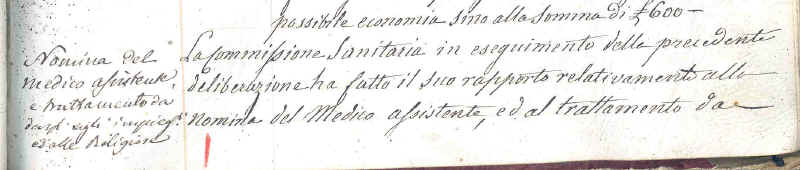 possibile economia sino alla somma di £600 —
Nomina del
medico assistente,
e trattamento da
darsi agli impieg.ti
ed alle Religiose
La Commissione Sanitaria in eseguimento della precedente
deliberazione ha fatto il suo rapporto relativamente alla
Nomina del Medico assistente, ed al trattamento da